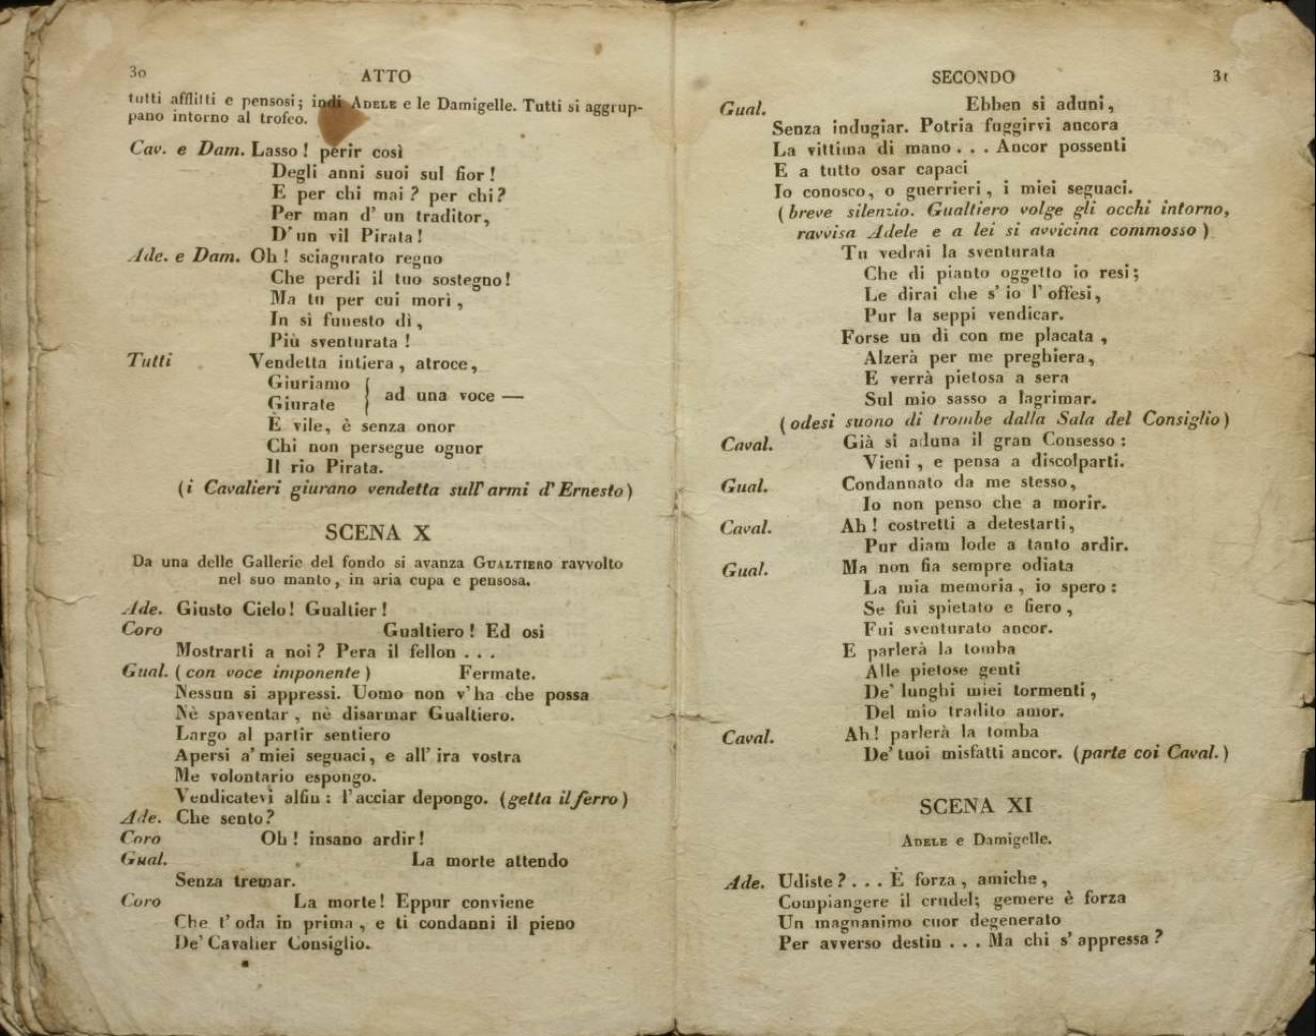 30 ATTO
tutti afflitti e pensosi; indi ADELE e le Damigelle. Tutti si aggrup-
pano intorno al trofeo.
Cav. e Dam. Lasso! perir così
Degli anni suoi sul fior!
E per chi mai? per chi?
Per man d' un traditor,
D'un vil Pirata!
Ade. e Dam. Oh! sciagurato regno
Che perdi il tuo sostegno!
Ma tu per cui morì,
In sì funesto dì,
Più sventurata!
Tutti Vendetta intiera, atroce,
Giuriamo
Giurate } ad una voce —
È vile, è senza onor
Chi non persegue ognor
Il rio Pirata.
(i Cavalieri giurano vendetta sull' armi d' Ernesto)
SCENA X
Da una delle Gallerie del fondo si avanza GUALTIERO ravvolto
nel suo manto, in aria cupa e pensosa.
Ade. Giusto Cielo! Gualtier!
Coro Gualtiero! Ed osi
Mostrarti a noi? Pera il fellon . . .
Gual. (con voce imponente) Fermate.
Nessun si appressi. Uomo non v'ha che possa
Nè spaventar, nè disarmar Gualtiero.
Largo al partir sentiero
Apersi a' miei seguaci, e all' ira vostra
Me volontario espongo.
Vendicatevi alfin: l'acciar depongo. (getta il ferro)
Ade. Che sento?
Coro Oh! insano ardir!
Gual. La morte attendo
Senza tremar.
Coro La morte! Eppur conviene
Che t' oda in prima, e ti condanni il pieno
De' Cavalier Consiglio.
SECONDO 31
Gual. Ebben si aduni,
Senza indugiar. Potria fuggirvi ancora
La vittima di mano . . . Ancor possenti
E a tutto osar capaci
Io conosco, o guerrieri, i miei seguaci.
(breve silenzio. Gualtiero volge gli occhi intorno,
ravvisa Adele e a lei si avvicina commosso)
Tu vedrai la sventurata
Che di pianto oggetto io resi;
Le dirai che s' io l' offesi,
Pur la seppi vendicar.
Forse un dì con me placata,
Alzerà per me preghiera,
E verrà pietosa a sera
Sul mio sasso a lagrimar.
(odesi suono di trombe dalla Sala del Consiglio)
Caval. Già si aduna il gran Consesso:
Vieni, e pensa a discolparti.
Gual. Condannato da me stesso,
Io non penso che a morir.
Caval. Ah! costretti a detestarti,
Pur diam lode a tanto ardir.
Gual. Ma non fia sempre odiata
La mia memoria, io spero:
Se fui spietato e fiero,
Fui sventurato ancor.
E parlerà la tomba
Alle pietose genti
De' lunghi miei tormenti,
Del mio tradito amor.
Caval. Ah! parlerà la tomba
De' tuoi misfatti ancor. (parte coi Caval.)
SCENA XI
ADELE e Damigelle.
Ade. Udiste? . . . È forza, amiche,
Compiangere il crudel; gemere è forza
Un magnanimo cuor degenerato
Per avverso destin . . . Ma chi s' appressa?